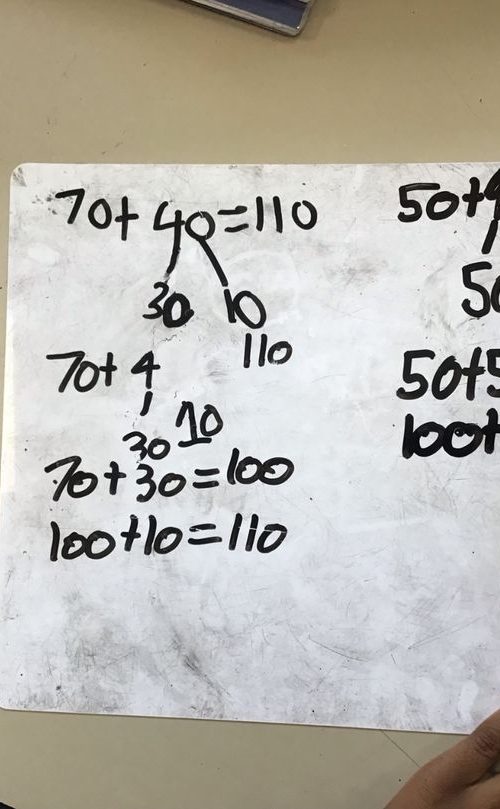 70+ 40=110
30 10
110
70+ 4
30 10
70+30=100
100+10=110
50+
50
50+5
100+